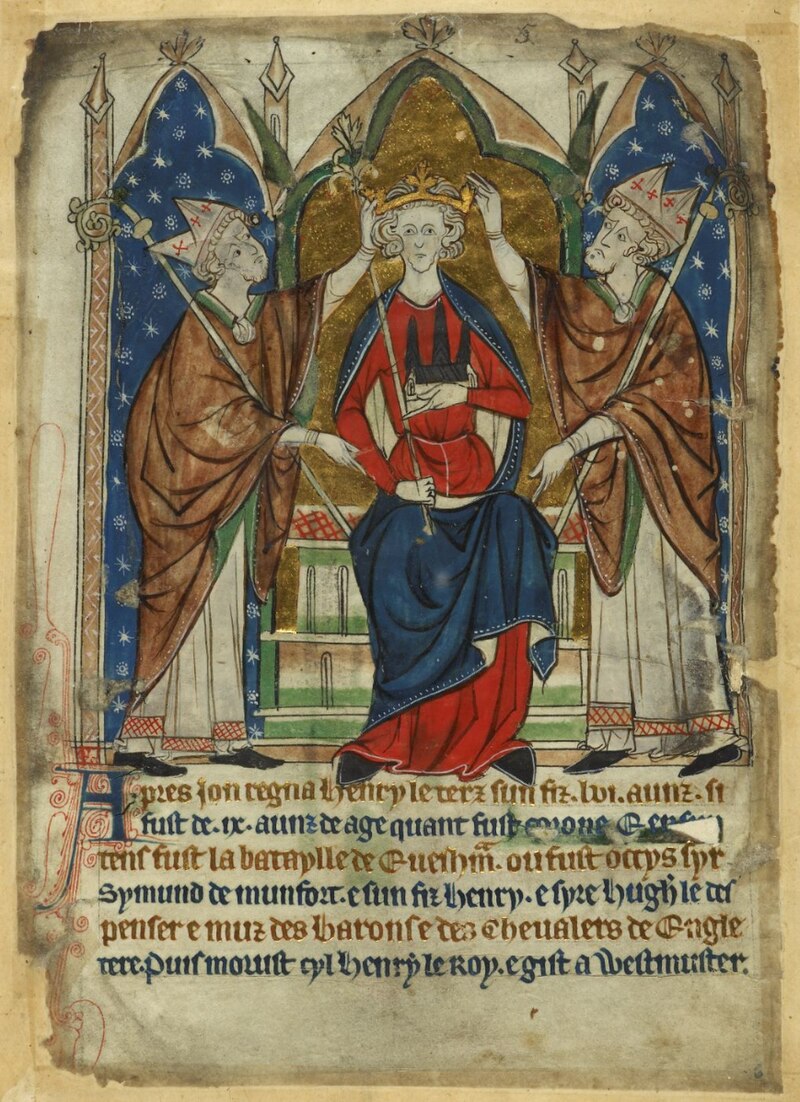 5
Apres Jon regna Henry le terz sun fiz. lvi. aunz. si
fust de .ix. aunz de age quant fust corone E en sun
tens fust la bataylle de Euesham̄. ou fust occys syr
Symund de munfort. e sun fiz Henry. e syre Hugh le des
penser e muz des barons e des Cheualers de Engle
tere. Puis morust cyl Henry le Roy. e gist a Westmuster.
6